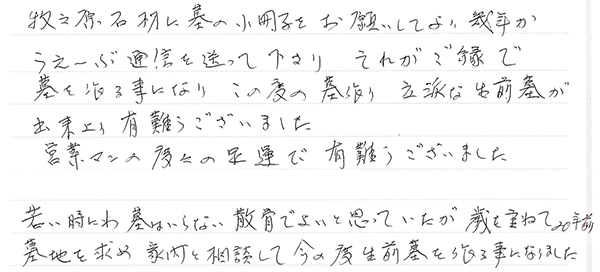 牧之原石材に墓の小冊子をお願いしてより幾年か
うえーぶ通信を送って下さり それがご縁で
墓を作る事になり この度の墓作り 立派な生前墓が
出来上り 有難うございました
営業マンの度々の足運で 有難うございました
若い時にわ 墓はいらない 散骨でよいと思っていたが 歳を重ねて20年前
墓地を求め 家内と相談して今の度生前墓を作る事になりました